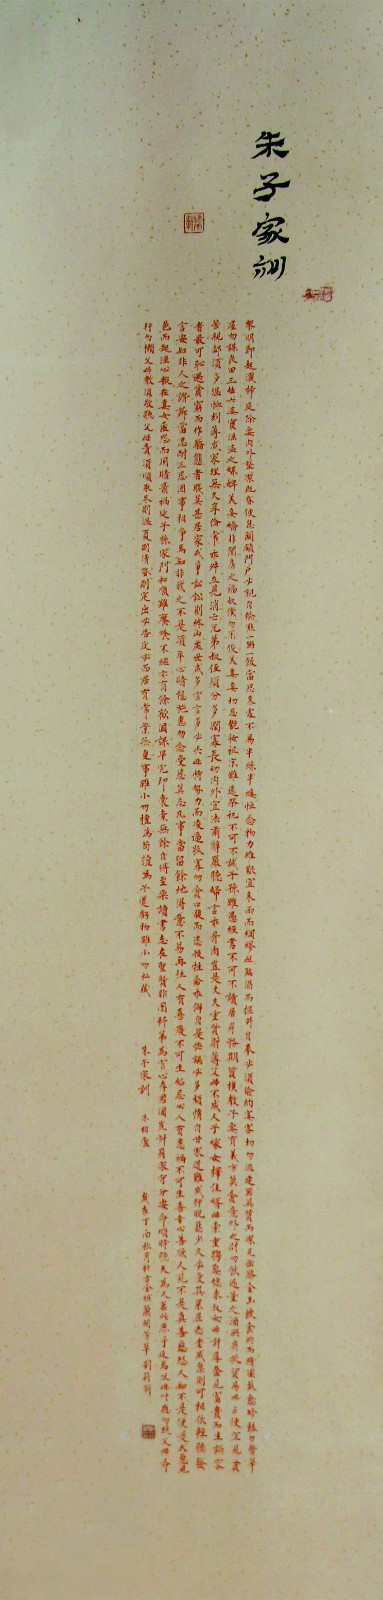 朱子家訓
黎明即起灑掃庭除要內外整潔既昏便息關鎖門戶必親自檢點一粥一飯當思來處不易半絲半縷恆念物力維艱宜未雨而綢繆毋臨渴而掘井自奉必須儉約宴客切勿流連器具質而潔瓦缶勝金玉飲食約而精園蔬愈珍饈勿營華
屋勿謀良田三姑六婆實淫盜之媒婢美妾嬌非閨房之福奴僕勿用俊美妻妾切忌艷妝祖宗雖遠祭祀不可不誠子孫雖愚經書不可不讀居身務期質樸教子要有義方莫貪意外之財勿飲過量之酒與肩挑貿易毋占便宜見貧
苦親鄰須多溫恤刻薄成家理無久享倫常乖舛立見消亡兄弟叔侄須分多潤寡長幼內外宜法肅辭嚴聽婦言乖骨肉豈是丈夫重貲財薄父母不成人子嫁女擇佳婿毋索重聘娶媳求淑女毋計厚奩見富貴而生諂容
者最可恥遇貧窮而作驕態者賤莫甚居家戒爭訟訟則終凶處世戒多言言多必失毋恃勢力而凌逼孤寡勿貪口腹而恣殺牲禽乖僻自是悔誤必多頹惰自甘家道難成狎昵惡少久必受其累屈志老成急則可相依輕聽發
言安知非人之譖訴當忍耐三思因事相爭焉知非我之不是須平心暗想施惠勿念受恩莫忘凡事當留餘地得意不易再往人有喜慶不可生妒忌心人有患禍不可生喜幸心善欲人見不是真善惡恐人知不是便是大惡見
色而起淫心報在妻女匿怨而用暗箭禍延子孫家門和順雖饔飧不繼亦有餘歡國課早完即囊橐無餘自得至樂讀書志在聖賢非圖科第為官心存君國豈計身家守分安命順時聽天為人若此庶乎近焉父母呼應勿緩父母命
行勿懶父母教須敬聽父母責須順承冬則溫夏則清昏則定出必告反必面居有常業無變事雖小勿擅為苟擅為子道虧物雖小勿私藏 朱子家訓 朱柏廬 歲在丁酉秋月 劉莉莉